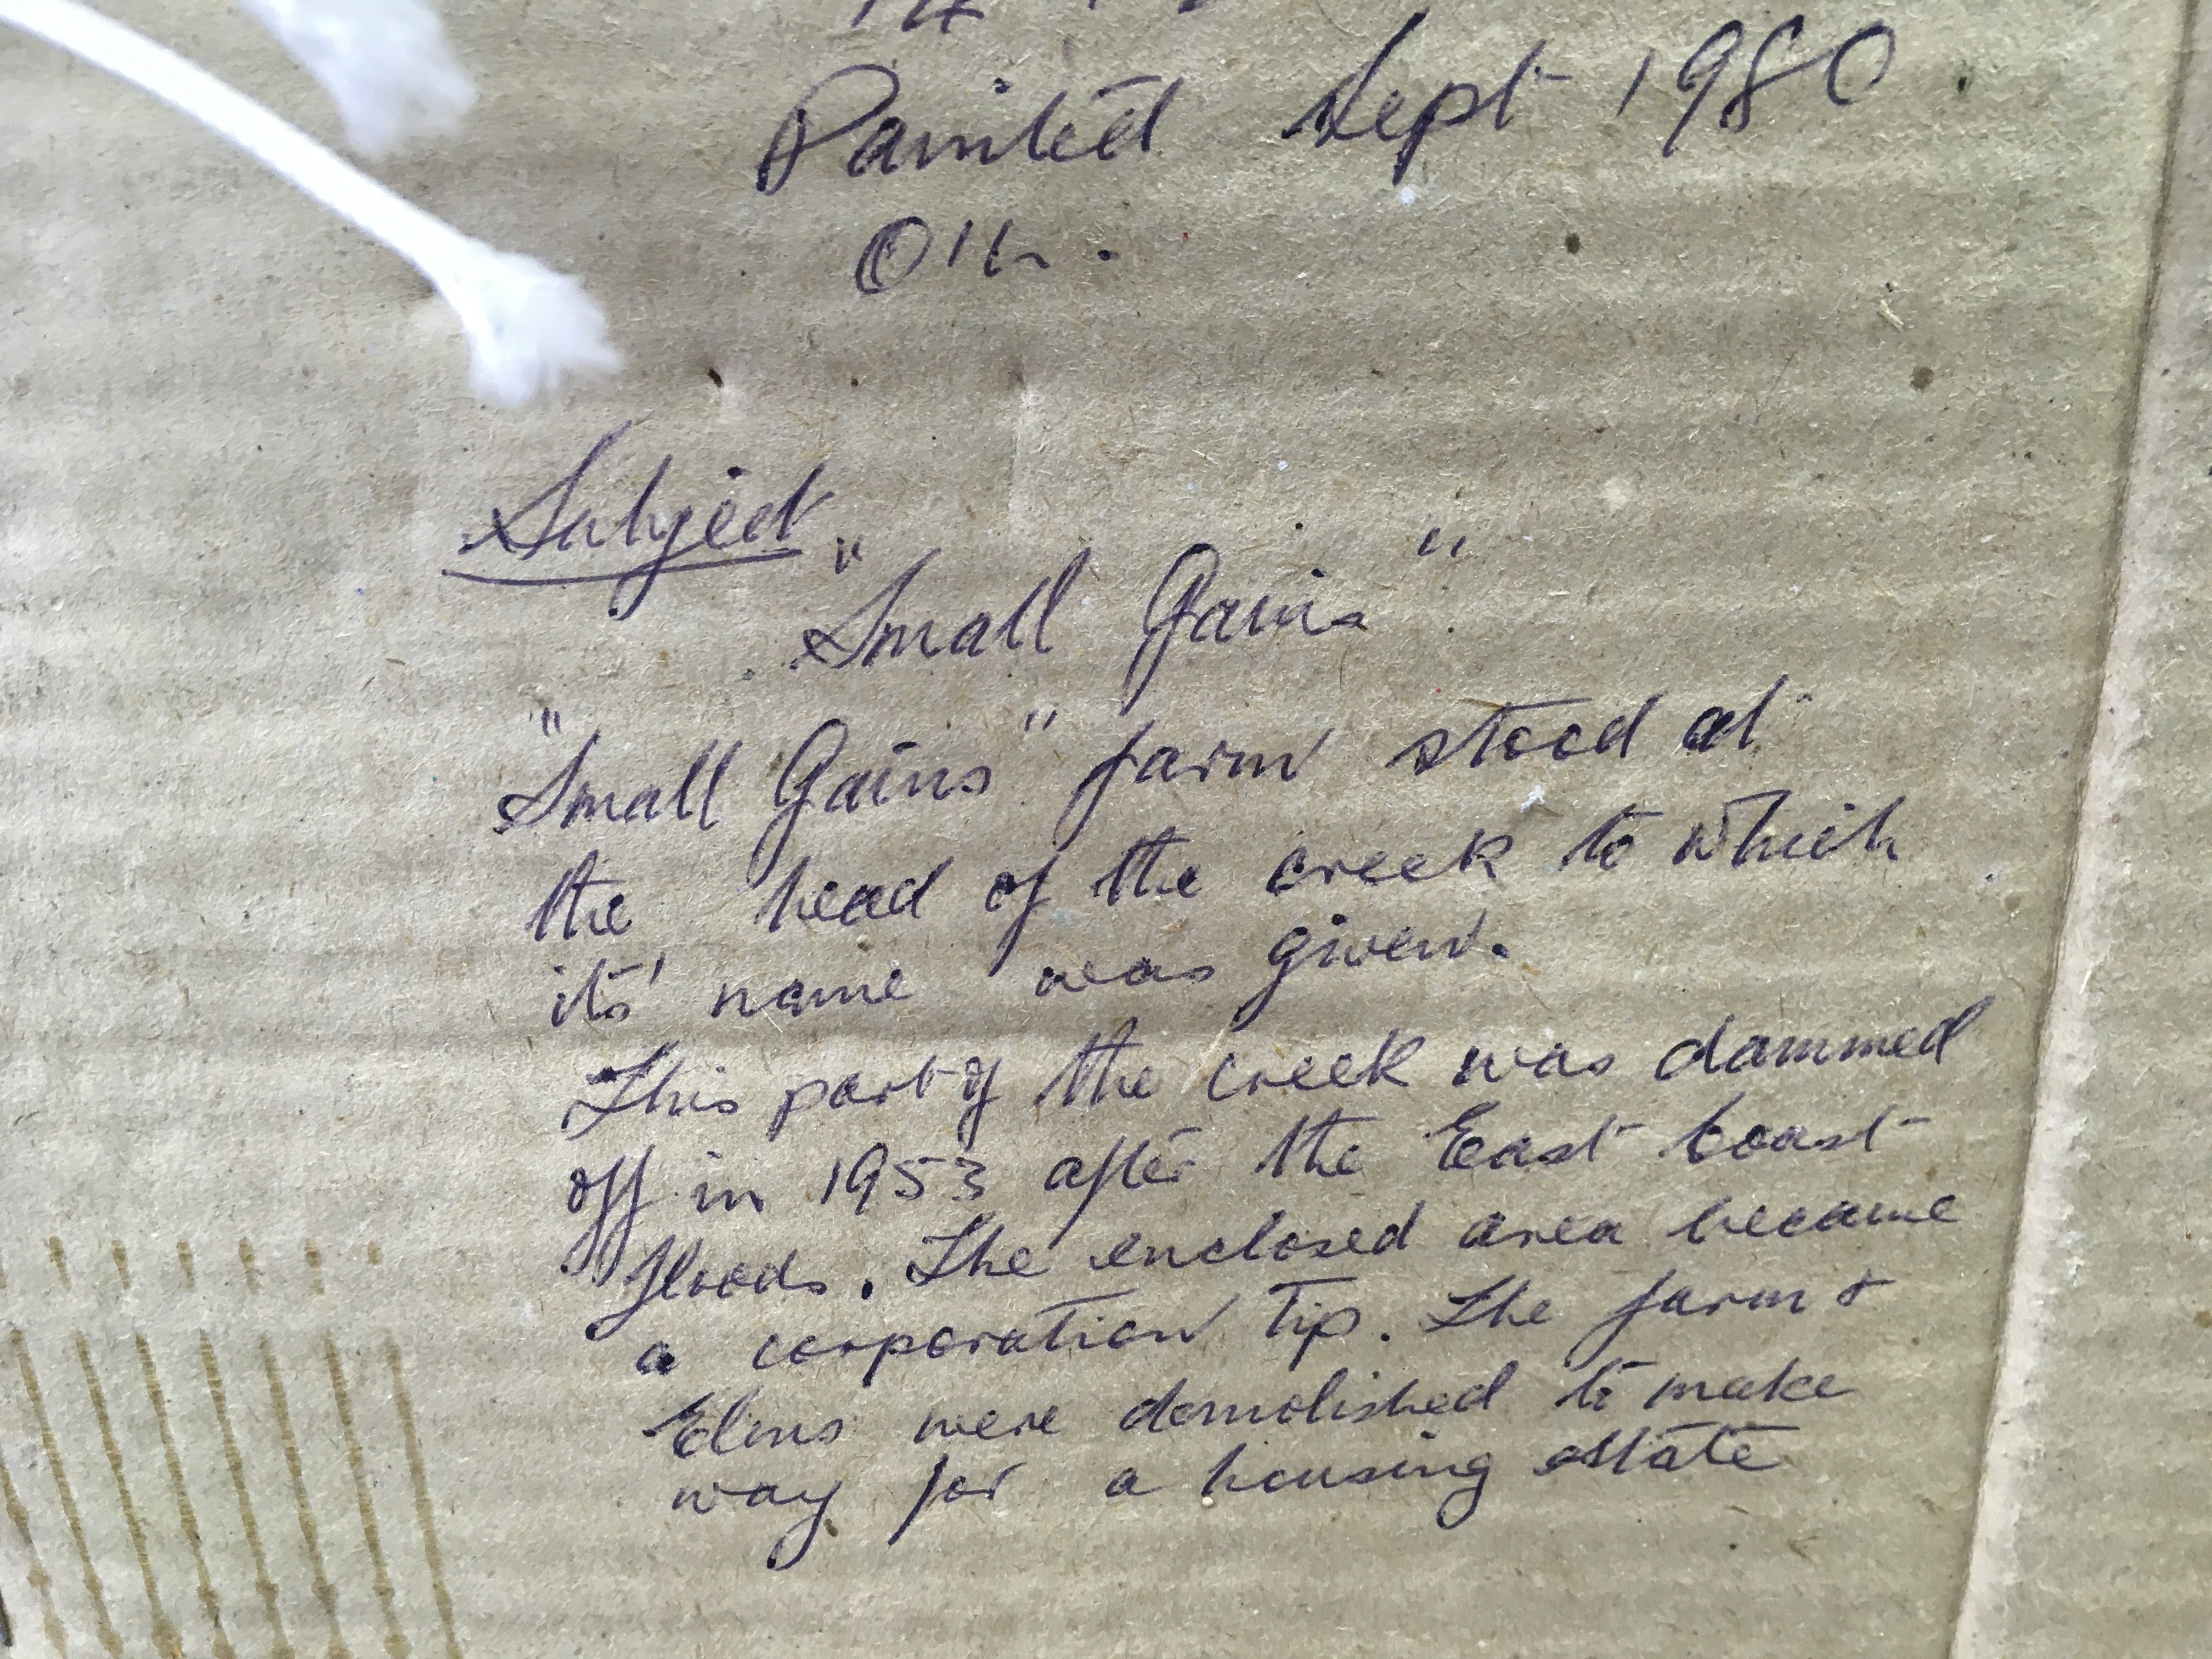 Painted Sept 1980
OIL.
Subject
"Small Gains"
"Small Gains" farm stood at
the head of the creek to which
its' name was given.
This part of the creek was dammed
off in 1953 after the East Coast
floods. The enclosed area became
a corporation Tip. The farm &
Elms were demolished to make
way for a housing estate